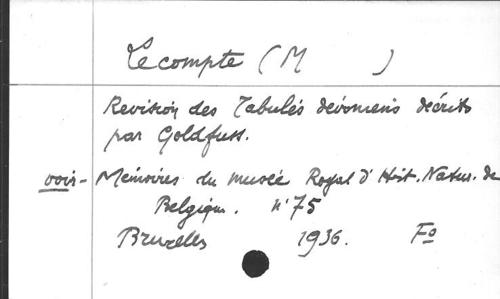 Lecompte (M )
Revision des Tabulés dévoniens décrits
par Goldfuss.
voir - Mémoires du musée Royal d'Hist. Natur. de
Belgique. n° 75
Bruxelles 1936. Fo